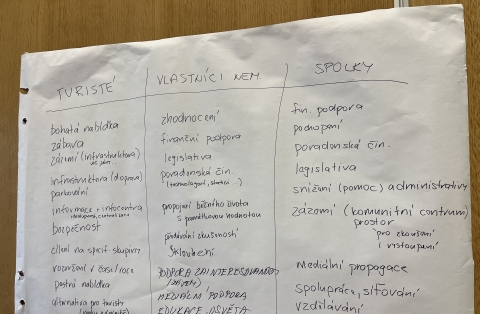 TURISTÉ
bohatá nabídka
zábava
zázemí (infrastruktura)
infrastruktura (doprava)
parkování
informace + infocentra
bezpečnost
cílení na specif. skupiny
rozmržení v čase/roce
pestrá nabídka
alternativa pro turisty
VLASTNÍCI NEM.
zhodnocení
finanční podpora
legislativa
poradenská čin.
propojení běžného života
s památkovou hodnotou
předávání zkušeností
skloubení
PODPORA ZAINTERESOVANOSTI
MEDIÁLNÍ PODPORA
EDUKACE, OSVĚTA
SPOLKY
fin. podpora
pochopení
poradenská čin.
legislativa
snížení (pomoc) administrativy
zázemí (komunitní centrum)
prostor
pro zkoušení
i vystoupení
mediální propagace
spolupráce, síťování
vzdělávání